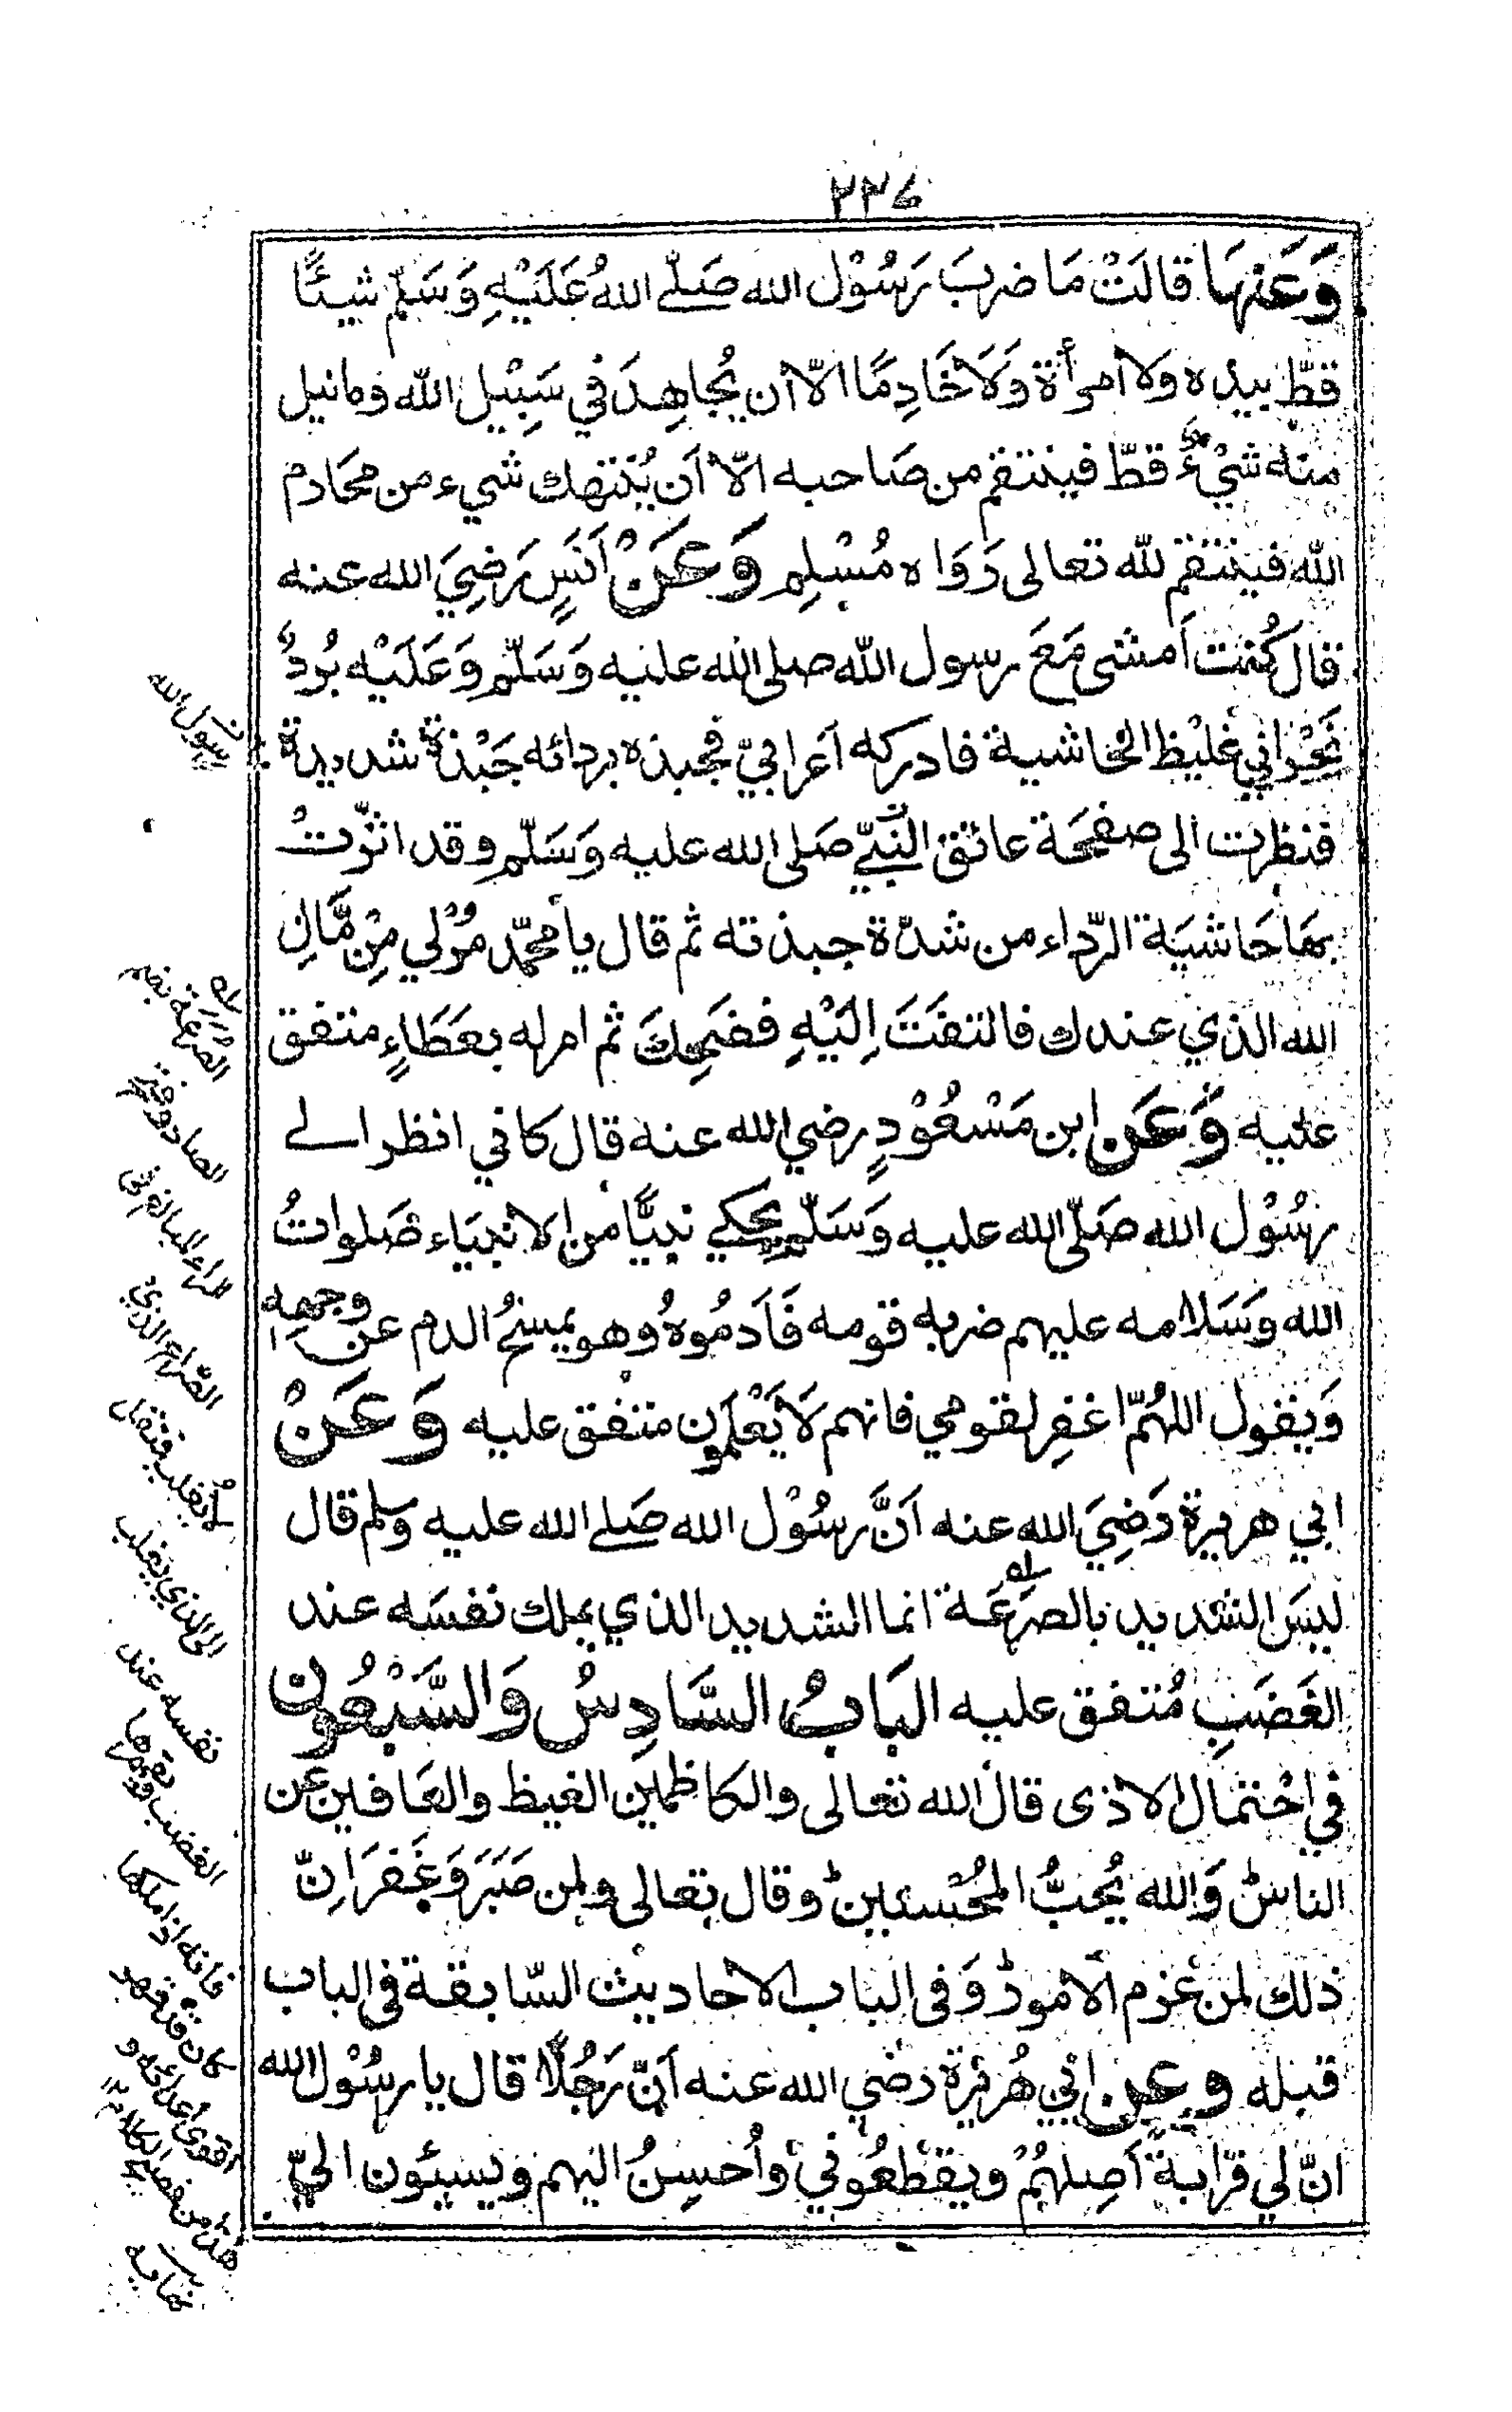 ٢٢٦
وَعَنهَا قالَتْ مَا ضربَ رَسُوْل الله صَلّے اللهُ عَلَيْهِ وَسَلّم شيئًا
قطّ بيده ولا امرأة وَلَا خَادِمًا الّا أن يُجاهِدَ في سَبِيْل الله وما نيل
منه شيْءٌ قطّ فينتقم من صَاحبه الّا أن يُنتهك شيء من محَارم
الله فينتقم لله تعالى رَوَاه مُسْلِم وَعَنْ أنَسٍ رَضِيَ الله عنه
قال كُنت أمشى مَعَ رسول الله صلى الله عليه وَسَلّم وَعَلَيْه بُردٌ
نَجْراني غليْظ الحاشية فادركه أعرابيّ فجبذه بردائه جَبْذة شديدة
فنظرت الى صفحَة عاتق النَبّيّ صَلى الله عليه وَسَلّم وقد اثّرتْ
بهَا حَاشيَة الرّداء من شدّة جبذته ثم قال يا محمّد مُرْلي مِنْ مَّالِ
الله الذي عندك فالتفَتَ إلَيْهِ فضَحِكَ ثم امر له بعَطَاءٍ متفق
عليه وَعَن ابن مَسْعُوْدٍ رضي الله عنه قال كاني انظر الے
رسُوْل الله صَلّى الله عليه وَسَلّم يحكي نبيًّا من الانبيَاء صَلواتُ
الله وَسَلامه عليهم ضربه قومه فَأدمُوهُ وهو يمسَحُ الدم عن وجهِه
وَيقول اللهُمّ اغفِر لقومي فانهم لَا يَعْلَمون متفق عليه وَعَنْ
ابي هريرة رَضِيَ الله عنه أنَّ رسُوْل الله صَلے الله عليه وسلم قال
ليسَ الشديد بالصرعَة انما الشديد الذي يملك نفسَه عند
الغَضَبِ مُتفق عليه البَابُ السَّادِسُ وَالسَّبْعُون
في احْتمال الاذى قال الله تعالى والكاظمين الغيظ والعَافين عن
الناس وَالله يُحبُّ المحُسنين وقال تعالى ولمن صَبَرَ وَغَفرَ انّ
ذلك لمن عزم الامور وَفى الباب الاحاديث السّابقة فى الباب
قبله وعن ابي هُريْرة رضي الله عنه أنّ رَجُلًا قال يا رسُوْل الله
انّ لي قرابةً أصِلهُمْ ويقطعُوني وأُحسِنُ اليهم ويسيئون اليّ
رسول الله
الصُّرَعَة بضم
الصاد وفتح
الراء المبالغ فى
الصّراع الذي
لا يُغلب فنقل
الى الذي يغلب
نفسه عند
الغضب ويقهرها
فانه اذا ملكها
كان قد قهر
أقوى أعدائه و
هذا من فصيح الكلام ١٢
نهاية